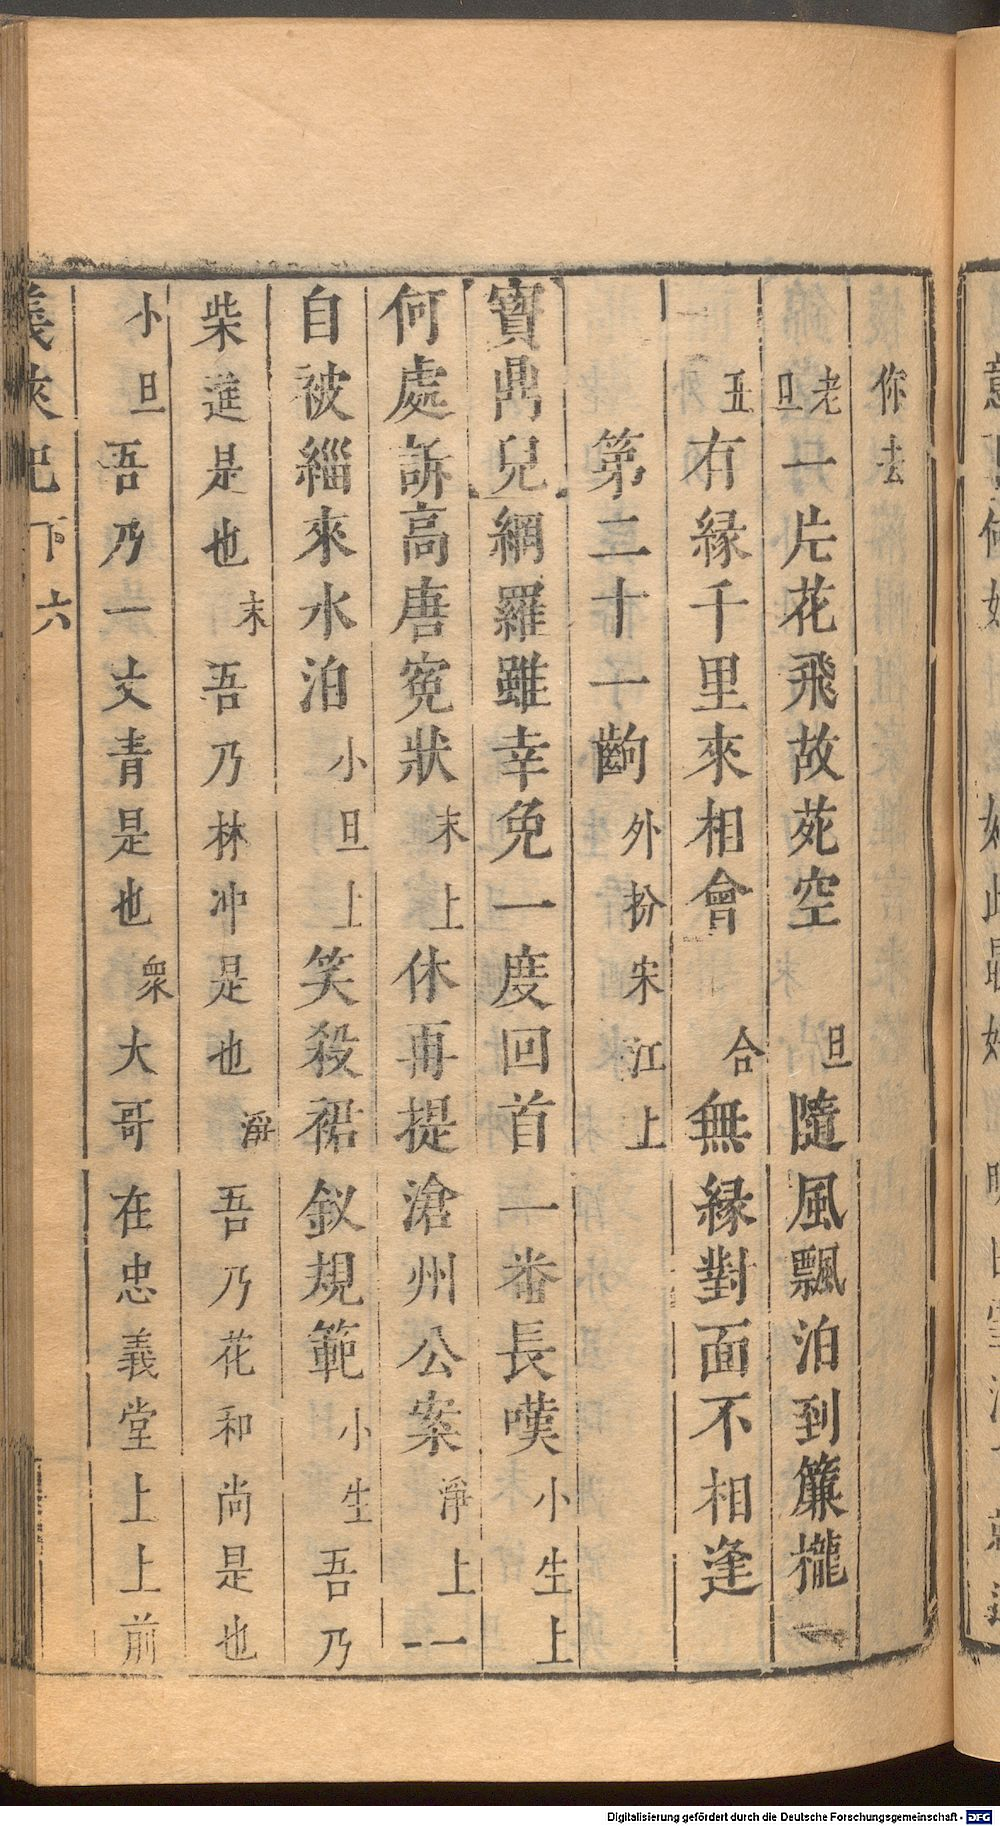 你去
老旦一片花飛故苑空　旦隨風飄泊到簾櫳
丑有緣千里來相會　合無緣對面不相逢
第二十一齣外扮宋江上
寳鼎兒網羅雖幸免一度回首一番長嘆小生上
何處訴高唐寃狀末上休再提滄州公案淨上一
自被緇來水泊小旦上笑殺裙釵規範小生吾乃
柴進是也末吾乃林冲是也淨吾乃花和尚是也
小旦吾乃一丈青是也衆大哥在忠義堂上上前
義俠記 下 六
Digitalisierung gefördert durch die Deutsche Forschungsgemeinschaft - DFG